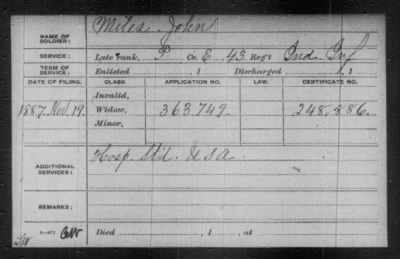 NAME OF SOLDIER: Miles, John
SERVICE: Late rank, P Co. E, 43 Reg't Ind. Inf
TERM OF SERVICE: Enlisted , 1 Discharged , 1
DATE OF FILING. CLASS. APPLICATION NO. LAW. CERTIFICATE NO.
Invalid,
1887 Nov. 19. Widow, 363.749. 248.886.
Minor,
ADDITIONAL SERVICES: Hosp. Std. USA.
REMARKS:
Died , 1 , at